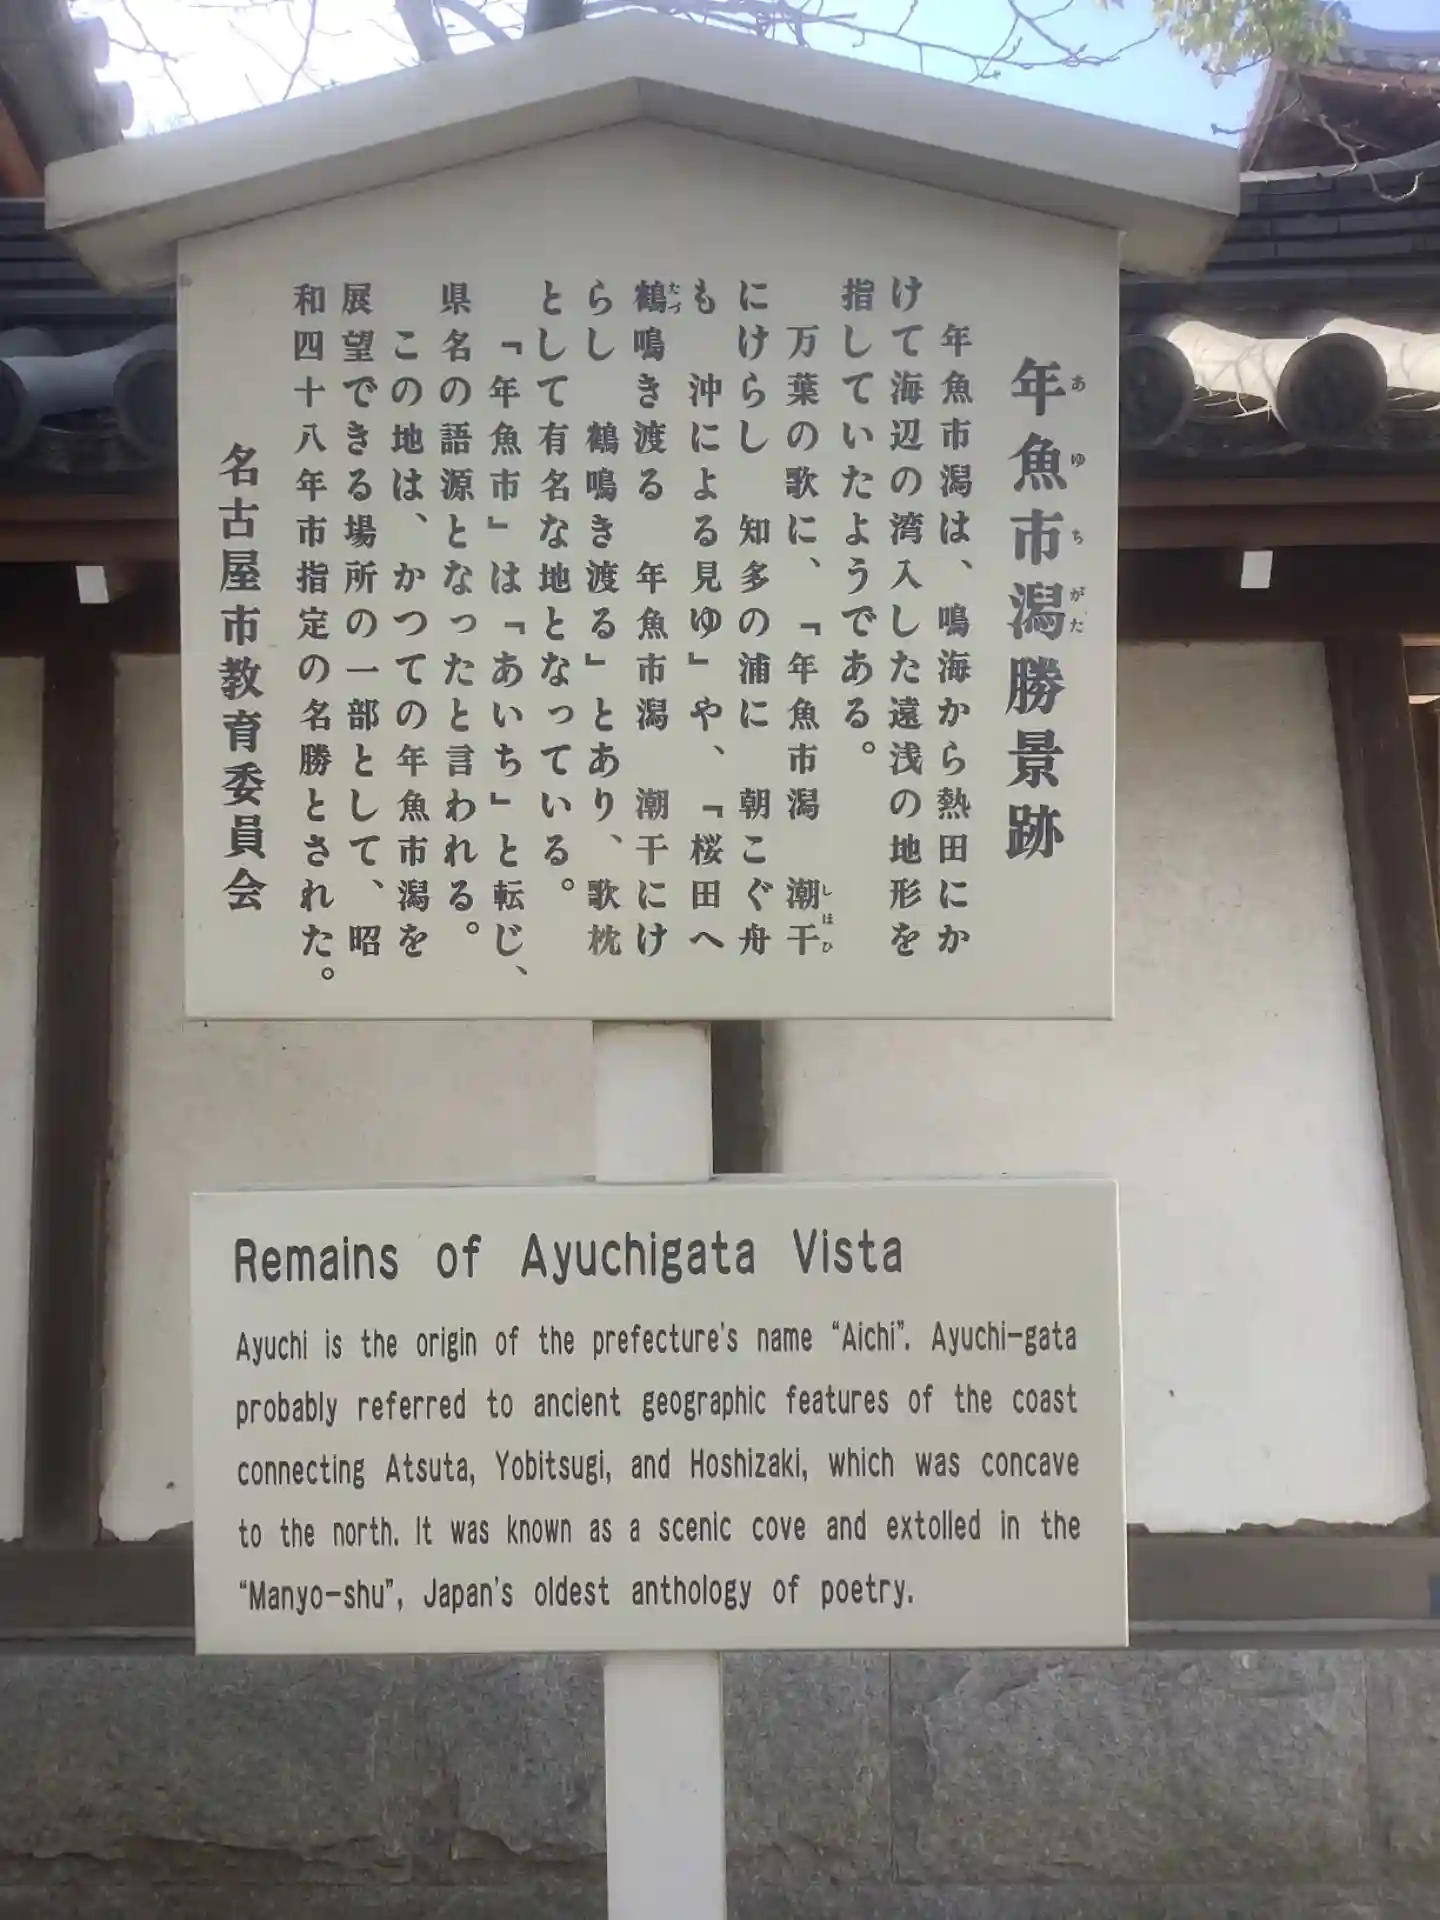 年魚市潟勝景跡
あゆちがた
年魚市潟は、鳴海から熱田にか
けて海辺の湾入した遠浅の地形を
指していたようである。
万葉の歌に、「年魚市潟 潮干
しほひ
にけらし 知多の浦に 朝こぐ舟
も 沖による見ゆ」や、「桜田へ
鶴鳴き渡る 年魚市潟 潮干にけ
たづ
らし 鶴鳴き渡る」とあり、歌枕
として有名な地となっている。
「年魚市」は「あいち」と転じ、
県名の語源となったと言われる。
この地は、かつての年魚市潟を
展望できる場所の一部として、昭
和四十八年市指定の名勝とされた。
名古屋市教育委員会
Remains of Ayuchigata Vista
Ayuchi is the origin of the prefecture's name “Aichi”. Ayuchi-gata
probably referred to ancient geographic features of the coast
connecting Atsuta, Yobitsugi, and Hoshizaki, which was concave
to the north. It was known as a scenic cove and extolled in the
“Manyo-shu”, Japan's oldest anthology of poetry.